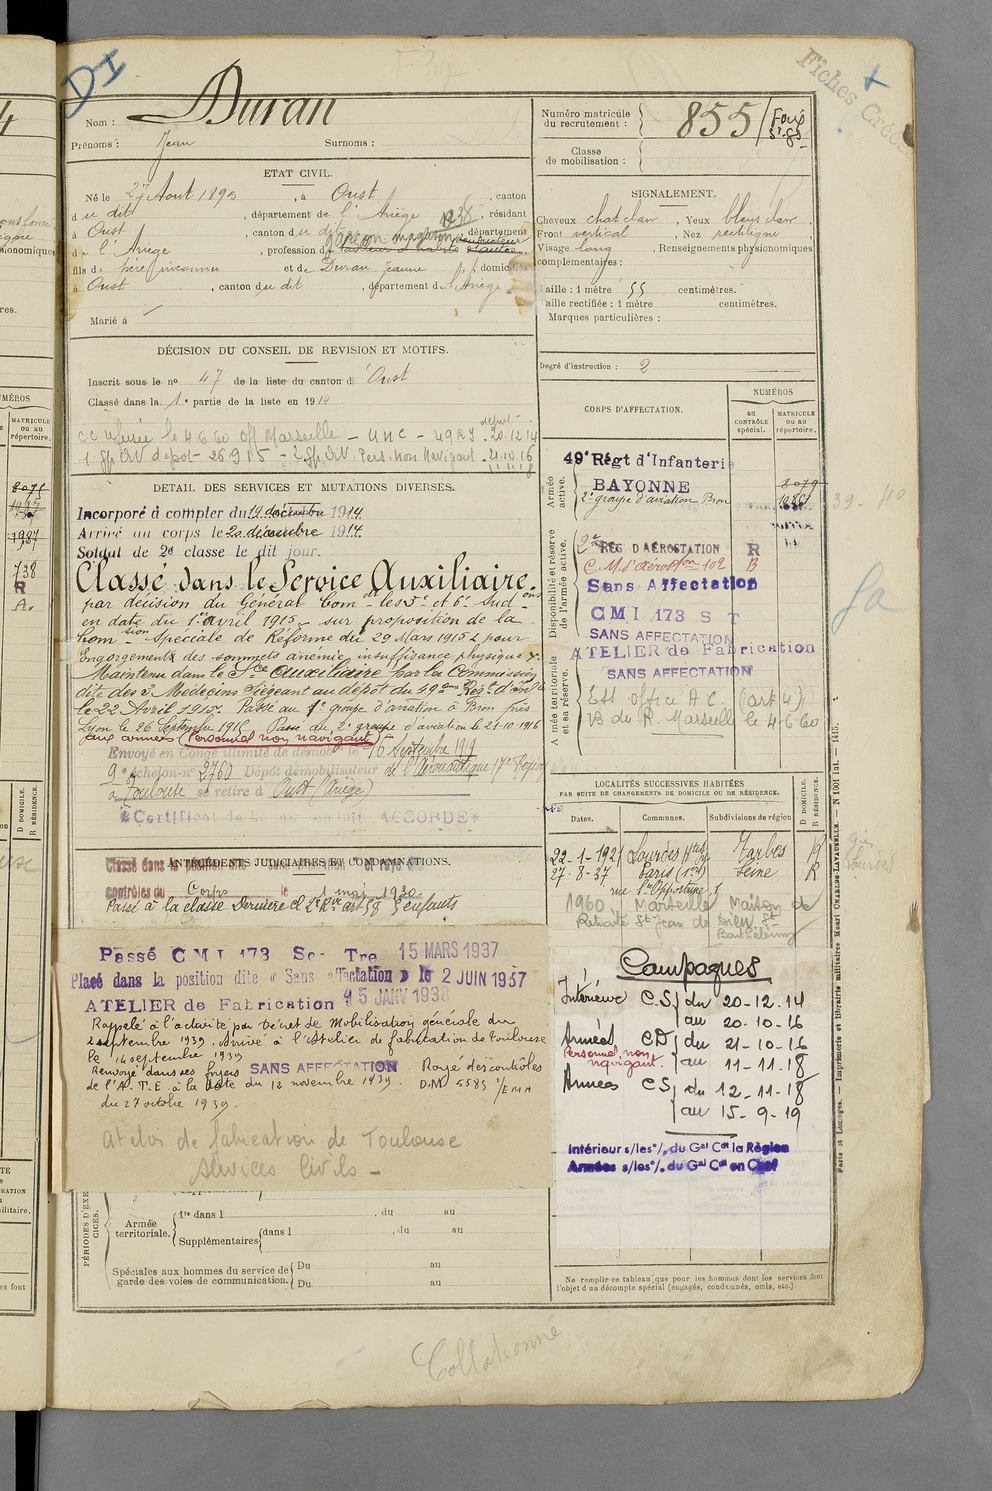 DI
Fiches Créées
Nom : Duran
Prénoms : Jean Surnoms :
Numéro matricule du recrutement : 855
Classe de mobilisation :
ETAT CIVIL.
Né le 27 Aout 1895, à Oust, canton
du dit, département de l'Ariège, résidant
à Oust, canton du dit 1938, département
de l'Ariège, profession de garçon magasin conducteur d'autos
fils de père inconnu et de Duran Jeanne, domiciliés
à Oust, canton du dit, département de l'Ariège
Marié à
SIGNALEMENT.
Cheveux chat clair, Yeux bleus clair,
Front vertical, Nez rectiligne,
Visage long, Renseignements physionomiques
complémentaires :
Taille : 1 mètre 55 centimètres.
Taille rectifiée : 1 mètre centimètres.
Marques particulières :
Degré d'instruction : 2
DÉCISION DU CONSEIL DE REVISION ET MOTIFS.
Inscrit sous le no 47 de la liste du canton d'Oust
Classé dans la 1e partie de la liste en 1914
cc refusée le 4 6 60 off Marseille — UNC — 49 RI. 20.12.14
1 Gp AV depot - 26 9 15 - 2 gp AV Pers. Non Navigant. 21.10.16
11 11 18
DETAIL DES SERVICES ET MUTATIONS DIVERSES.
Incorporé à compter du 19 décembre 1914
Arrivé au corps le 20 décembre 1914.
Soldat de 2e classe le dit jour.
Classé dans le Service Auxiliaire.
par décision du Général Comdt les 5e et 6e Subdons
en date du 1er avril 1915 sur proposition de la
Comtion Spéciale de Réforme du 29 Mars 1915 pour
Engorgements des sommets anémie, insuffisance physique.
Maintenu dans le Sce Auxiliaire par la Commission
dite des 3 Médecins Siégeant au dépôt du 49ème Régt d'Infie
le 22 Avril 1915. Passé au 1er groupe d'aviation à Bron près
Lyon le 26 Septembre 1915. Passé du 2e groupe d'aviation le 21-10-1916
aux armées (Personnel non navigant)
Envoyé en Congé illimité de démob. le 16 Septembre 1919
9e échelon no 2760 Dépôt démobilisateur de l'Aéronautique 17e Région
à Toulouse se retire à Oust (Ariège)
*Certificat de bonne conduite ACCORDÉ*
ANTÉCÉDENTS JUDICIAIRES ET CONDAMNATIONS.
Classé dans la position dite
contrôles du Corps le 1 mai 1930
Passé à la classe Dernière de 2e Rve art 58 5 enfants
Passé CMI 173 Son Tre 15 MARS 1937
Placé dans la position dite « Sans affectation » le 2 JUIN 1937
ATELIER de Fabrication
Rappelé à l'activité par Décret de Mobilisation générale du
2 septembre 1939. Arrivé à l'Atelier de fabrication de Toulouse
le 14 septembre 1939
Renvoyé dans ses foyers SANS AFFECTATION Rayé des contrôles
de l'A.T.E à la date du 12 novembre 1939. D.M 5585 1/EMA
du 27 octobre 1939.
Atelier de fabrication de Toulouse
Services Civils —
CORPS D'AFFECTATION.
NUMÉROS
au CONTRÔLE spécial.
MATRICULE ou au répertoire.
Armée active.
49e Régt d'Infanterie
BAYONNE
2e groupe d'aviation Bron
Disponibilité et réserve de l'armée active.
2e RÉG D'AÉROSTATION R
C.M. d'Aérostion 102 B
Sans Affectation
CMI 173 S T
SANS AFFECTATION
ATELIER de Fabrication
SANS AFFECTATION
Armée territoriale et sa réserve.
Est office A C (art 4)
VB du R. Marseille le 4-6-60
LOCALITÉS SUCCESSIVES HABITÉES
PAR SUITE DE CHANGEMENTS DE DOMICILE OU DE RÉSIDENCE.
Dates. Communes. Subdivisions de région
D DOMICILE.
R RÉSIDENCE.
22-1-1921 Lourdes Tarbes R
27-8-37 Paris (1er) Seine R
rue l'Opportune
1960 Marseille Maison de
Retraite St Jean de Dieu St
Barthélémy
Campagnes
Intérieure C.S du 20-12-14
au 20-10-16
Armées CD du 21-10-16
Personnel non navigant. au 11-11-18
Armées CS du 12-11-18
au 15-9-19
Intérieur s/les o/. du Gal Cdt la Région
Armées s/les o/. du Gal Cdt en Chef
PÉRIODES D'EXERCICES.
Armée territoriale.
1re dans l , du au
Supplémentaires dans l , du au
Spéciales aux hommes du service de garde des voies de communication.
Du au
Du au
Ne remplir ce tableau que pour les hommes dont les services font
l'objet d'un décompte spécial (engagés, condamnés, omis, etc.).
Paris et Limoges. — Imprimerie et librairie militaires Henri CHARLES-LAVAUZELLE. — N° 1001 int. — 1415.
Collationné